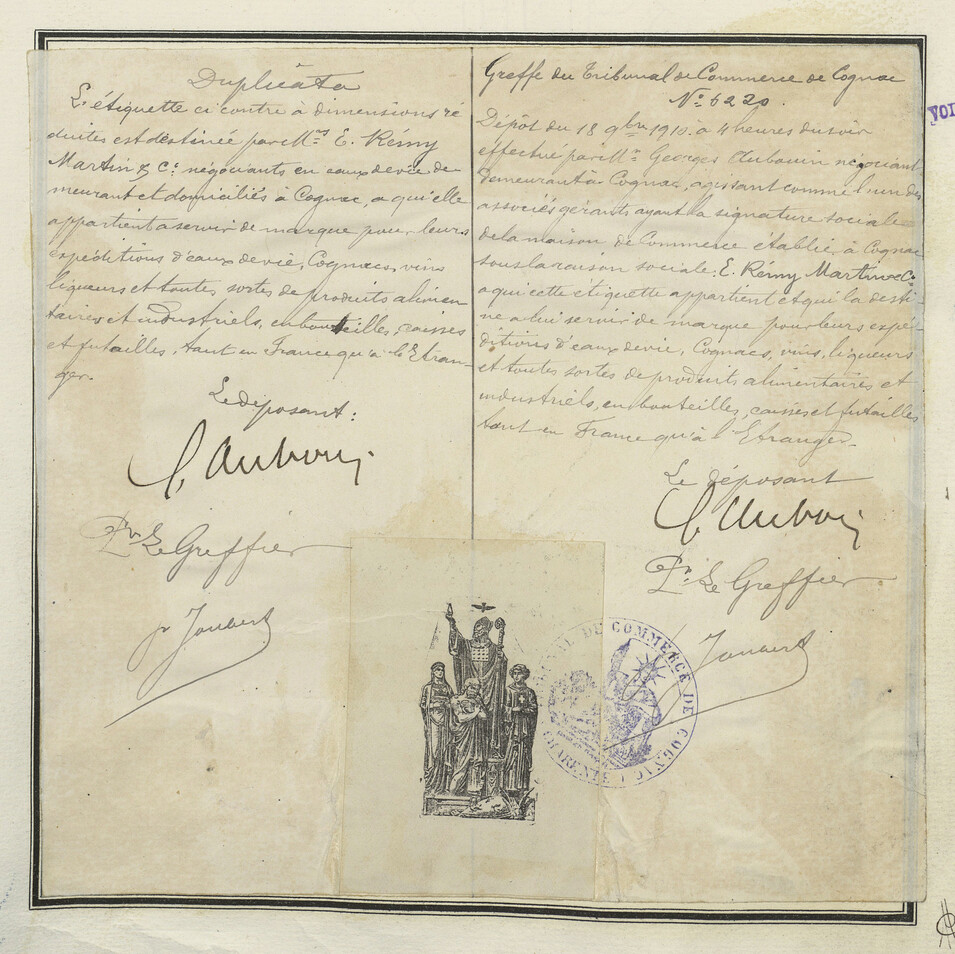 Duplicata
L'étiquette ci contre à dimensions ré
duites est destinée par Mrs E. Rémy
Martin & Co. négociants en eaux de vie de
meurant et domiciliés à Cognac, a qui elle
appartient a servir de marque pour leurs
expéditions d'eaux de vie, Cognacs, vins
liqueurs et toutes sortes de produits alimen
taires et industriels, en bouteilles, caisses
et futailles, tant en France qu'à l'Etran-
ger.
Le déposant:
G. Aubouin
Pr. Le Greffier
Joubert
Greffe du Tribunal de Commerce de Cognac
No. 6220.
Dépôt du 18 9bre 1910. à 4 heures du soir
effectué par Mr. Georges Aubouin négociant
demeurant à Cognac, agissant comme l'un des
associés gérants ayant la signature sociale
de la maison de Commerce établie à Cognac
sous la raison sociale: E. Rémy Martin & Co.
a qui cette étiquette appartient et qui la desti
ne a lui servir de marque pour leurs expé-
ditions d'eaux de vie, Cognacs, vins, liqueurs
et toutes sortes de produits alimentaires et
industriels, en bouteilles, caisses et futailles
tant en France qu'à l'Etranger.
Le déposant
G. Aubouin
Pr. Le Greffier
Joubert
TRIBUNAL DE COMMERCE DE COGNAC
CHARENTE
VOI